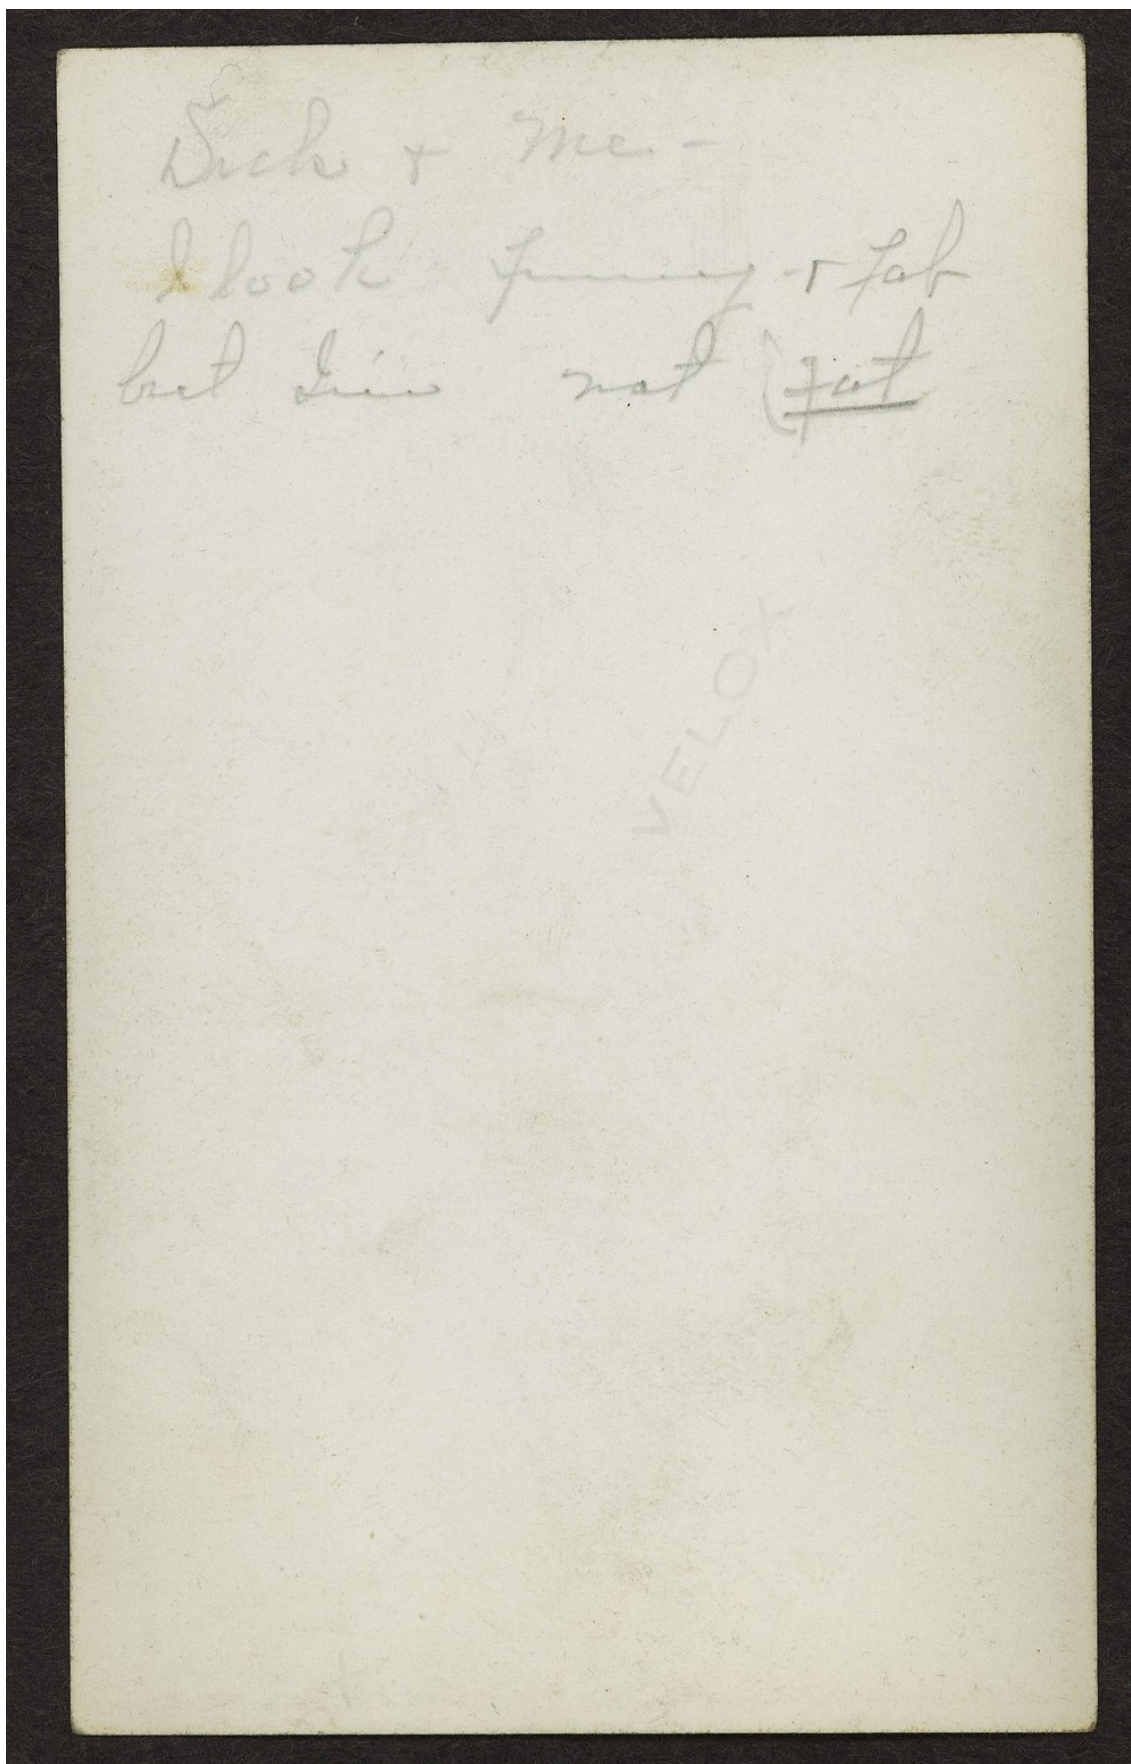 Dick + Me -
I look funny + fat
but I'm not fat
VELOX